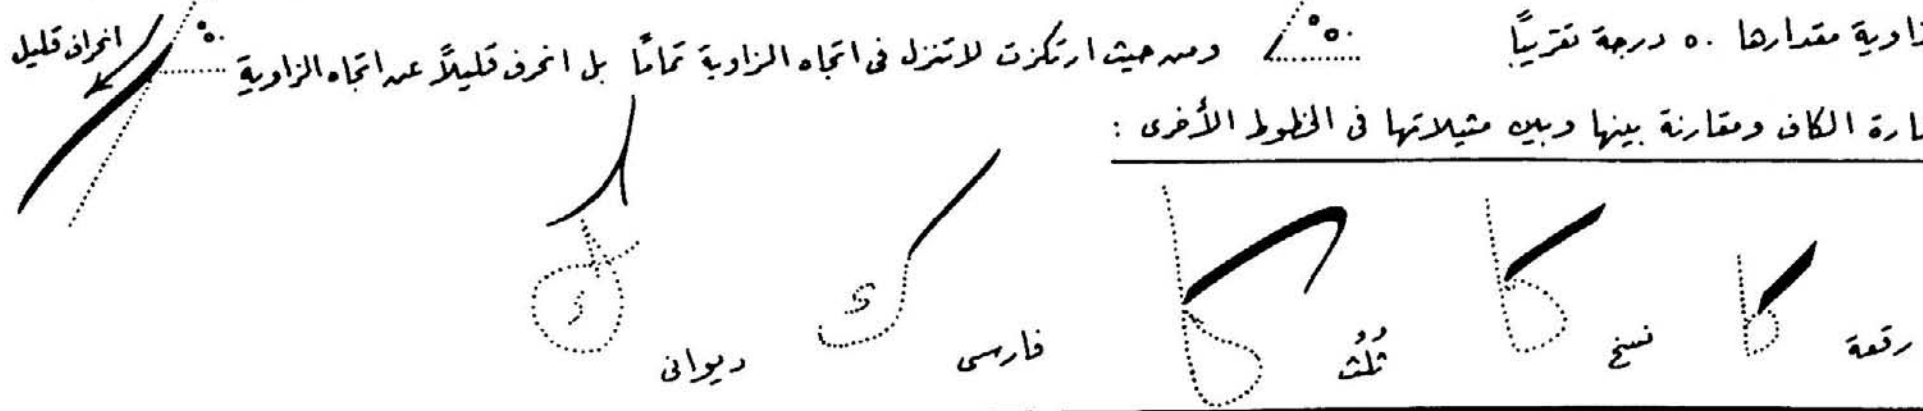 زاوية مقدارها ٥٠ درجة تقريبًا ٥٠° ومن حيث ارتكزت لا تنزل فى اتجاه الزاوية تمامًا بل انحرف قليلاً عن اتجاه الزاوية ٥٠° انحراف قليل
ارة الكاف ومقارنة بينها وبين مثيلاتها فى الخطوط الأخرى :
رقعة نسخ ثُلُث فارسى ديوانى